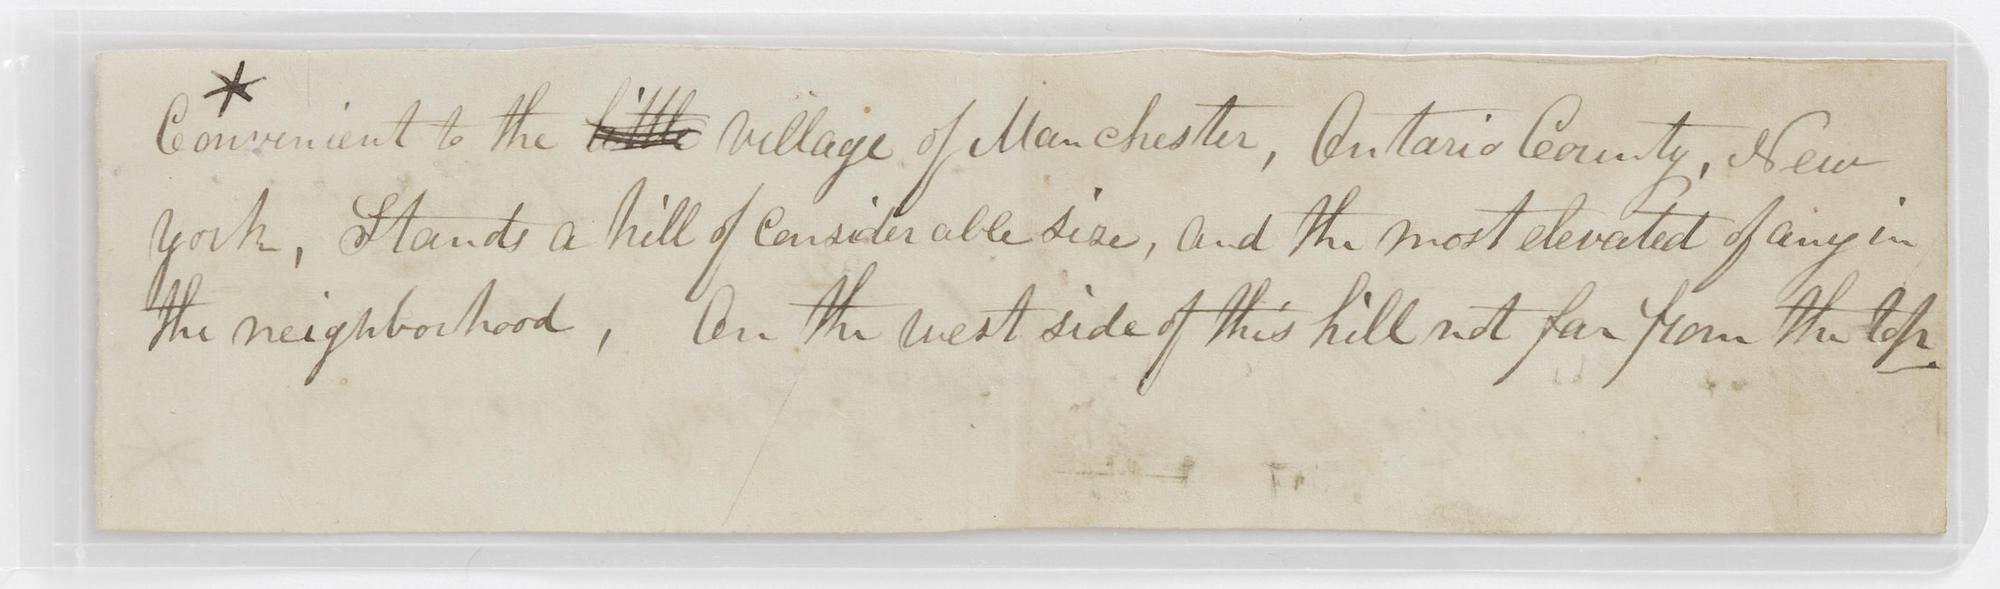 *
Convenient to the little village of Manchester, Ontario County, New
york, Stands a hill of considerable size, and the most elevated of any in
the neighborhood, On the west side of this hill not far from the top.